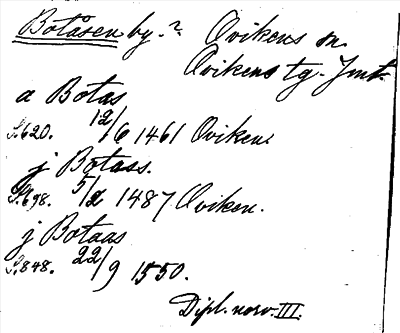 Botåsen by.? Ovikens sn.
Ovikens tg. Jmt.
a Botas
S.620. 12/6 1461 Oviken.
j Botass.
S.698. 5/2 1487 Oviken.
j Botaas
S.848. 22/9 1550.
Dipl. norv. III.